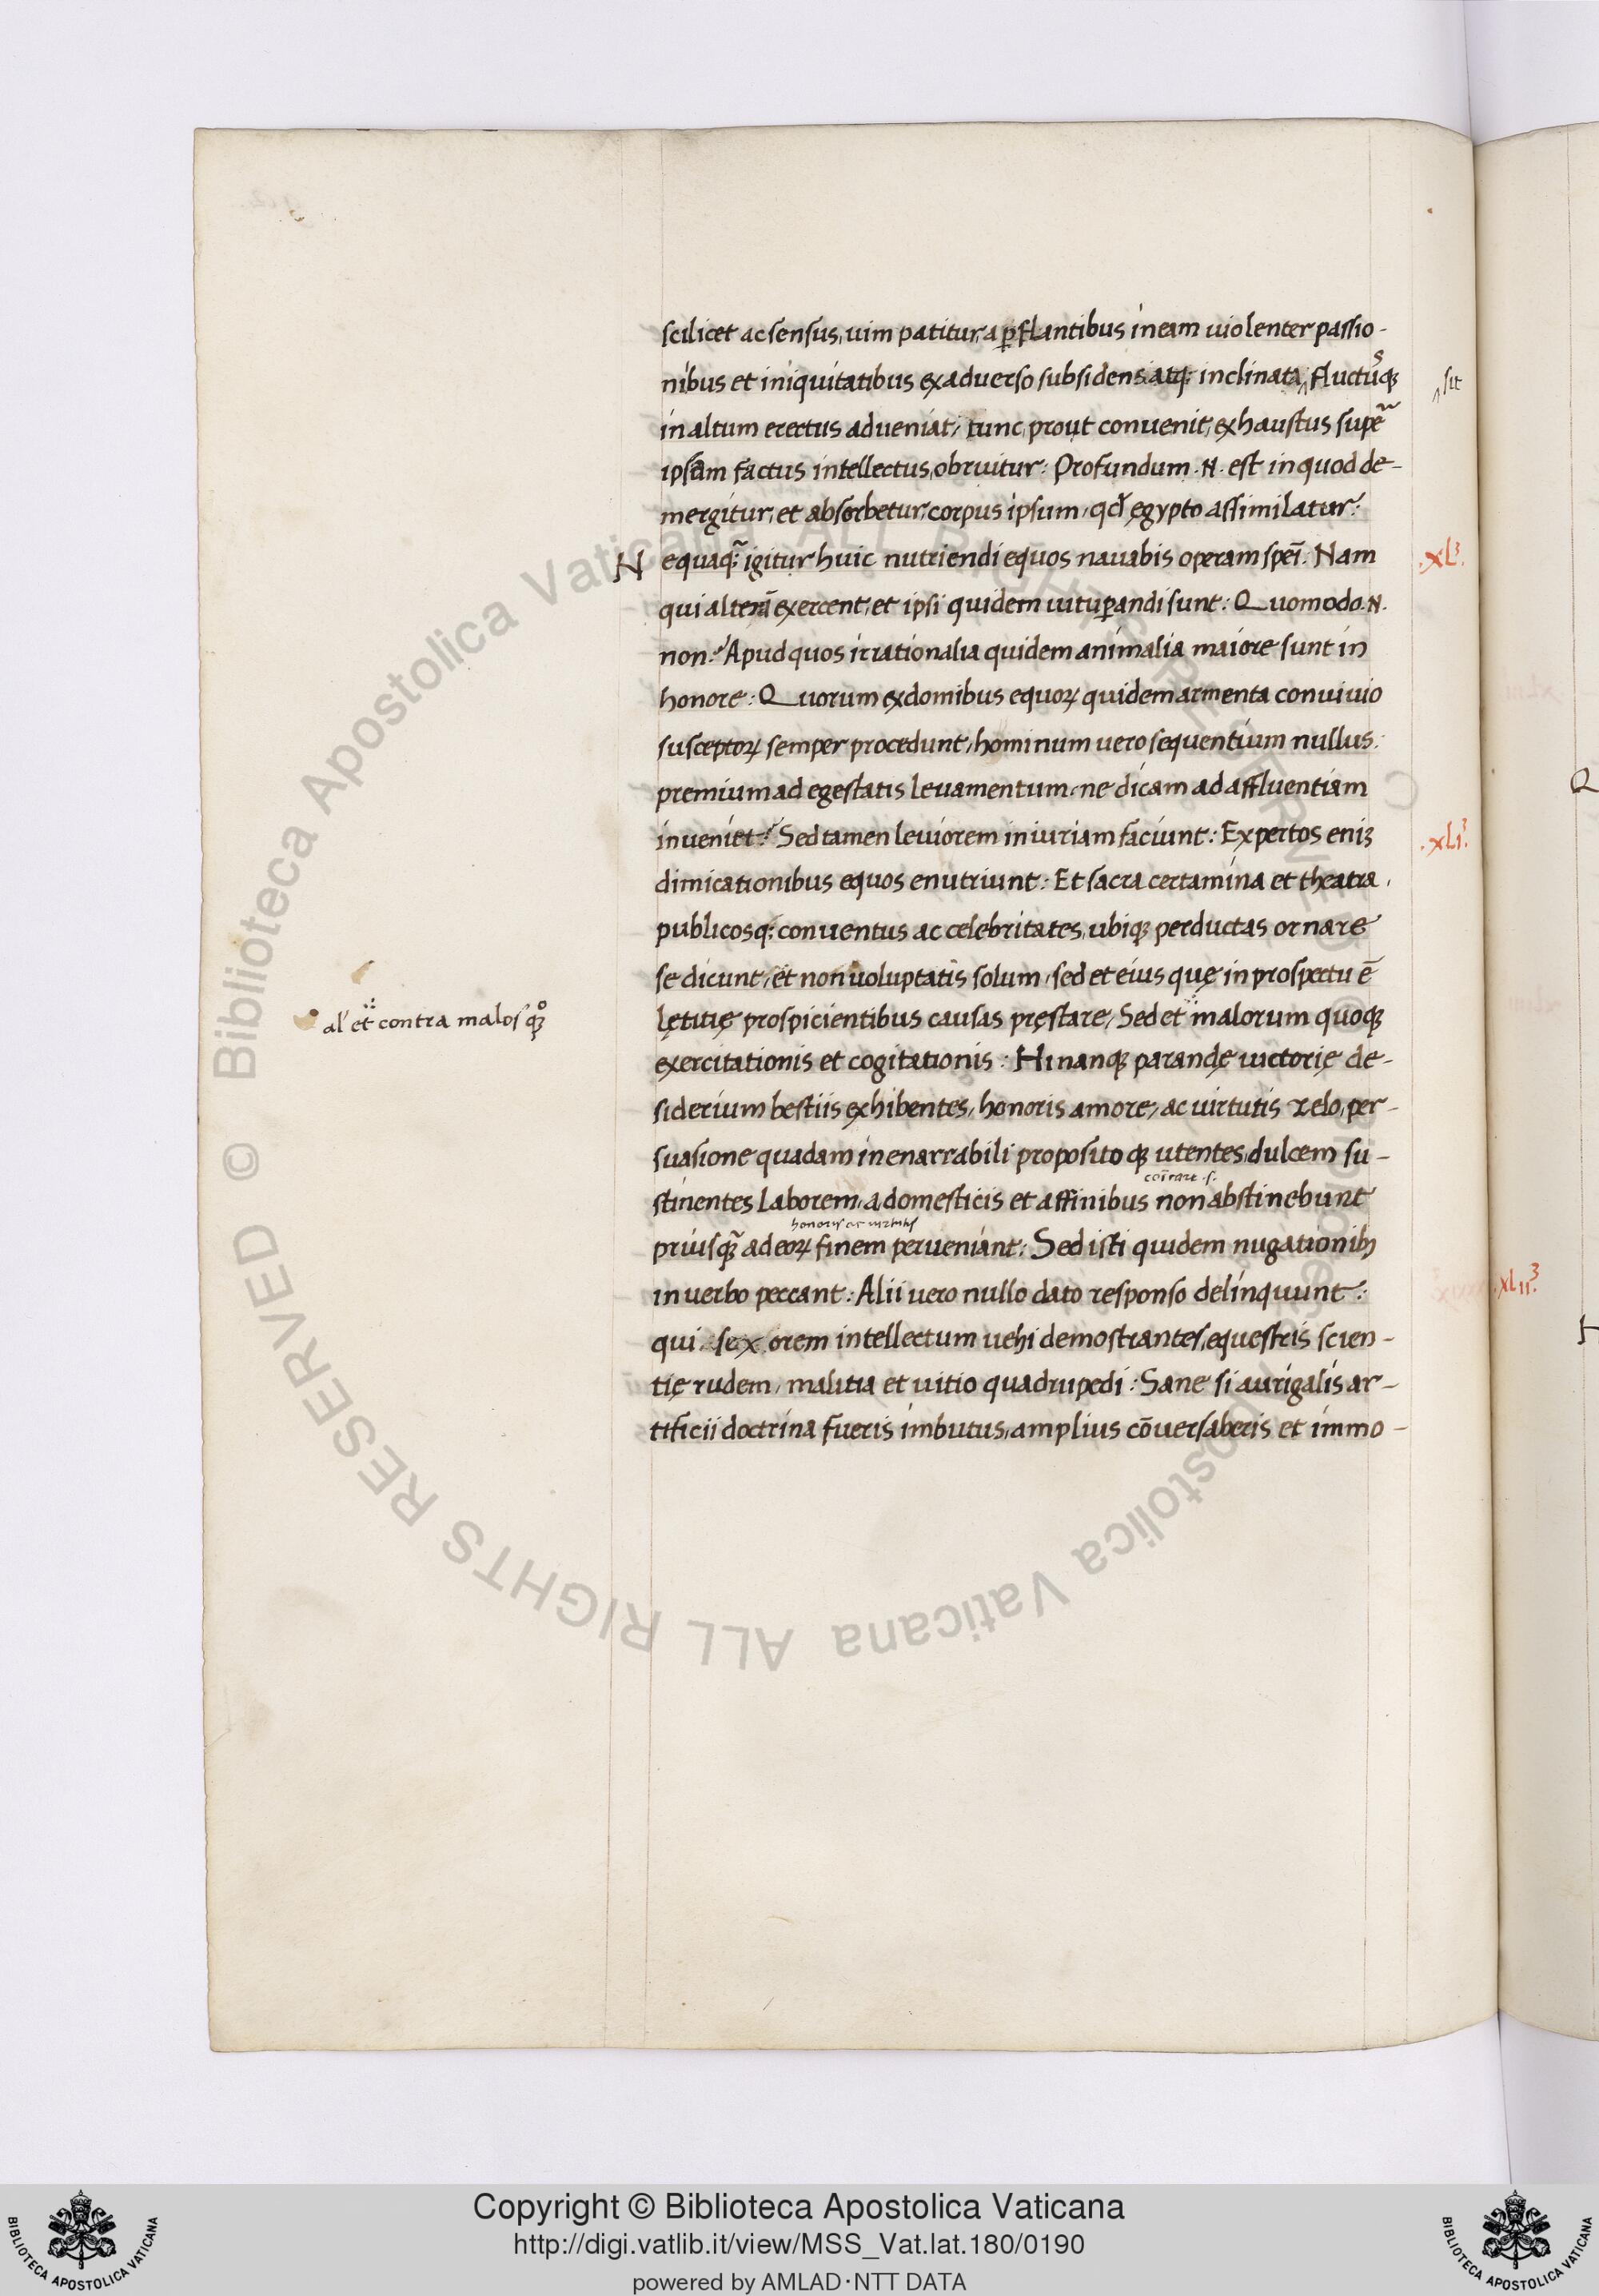 scilicet ac sensus, uim patitur, a p̱flantibus in eam uiolenter passio-
nibus et iniquitatibus ex aduerso subsidens atq; inclinata ^ fluctusq;
^ sit
in altum erectus adueniat, tunc, prout conuenit, exhaustus supe᷉
ipsam factus intellectus, obruitur: Profundum .N. est in quod de-
mergitur, et absorbetur, corpus ipsum, qd̄ ęgypto assimilatur:
Nequaq᷉: igitur huic nutriendi equos nauabis operam spēi: Nam
.XL.
qui alterā exercent, et ipsi quidem uitup̱andi sunt: Quomodo .N.
non? Apud quos irrationalia quidem animalia maiore sunt in
honore: Quorum ex domibus equoꝝ quidem armenta conuiuio
susceptoꝝ semper procedunt, hominum uero sequentium nullus
premium ad egestatis leuamentum, ne dicam ad affluentiam
inueniet? Sed tamen leuiorem iniuriam faciunt: Expertos eniꝫ
.XLI.
dimicationibus equos enutriunt: Et sacra certamina et theatra,
publicosq; conuentus ac celebritates, ubiqꝫ perductas ornare
se dicunt, et non uoluptatis solum, sed et eius quę in prospectu ē
lętitię prospicientibus causas pręstare, Sed et malorum quoqꝫ
al' et contra malos qꝫo
exercitationis et cogitationis: Hi nanqꝫ parandę uictorię de-
siderium bestiis exhibentes, honoris amore, ac uirtutis zelo, per-
suasione quadam inenarrabili proposito qꝫ utentes, dulcem su-
stinentes laborem, a domesticis et affinibus non abstinebunt
honoris ac uirtutis
priusq᷉ ad eoꝝ finem perueniant: Sed isti quidem nugationibꝫ
in uerbo peccant: Alii uero nullo dato responso delinquunt:
.XLII.
qui sexorem intellectum uehi demostrantes, equestris scien-
tię rudem, malitia et uitio quadrupedi: Sane si aurigalis ar-
tificii doctrina fueris imbutus, amplius cōuersaberis et immo-
Copyright © Biblioteca Apostolica Vaticana
http://digi.vatlib.it/view/MSS_Vat.lat.180/0190
powered by AMLAD·NTT DATA